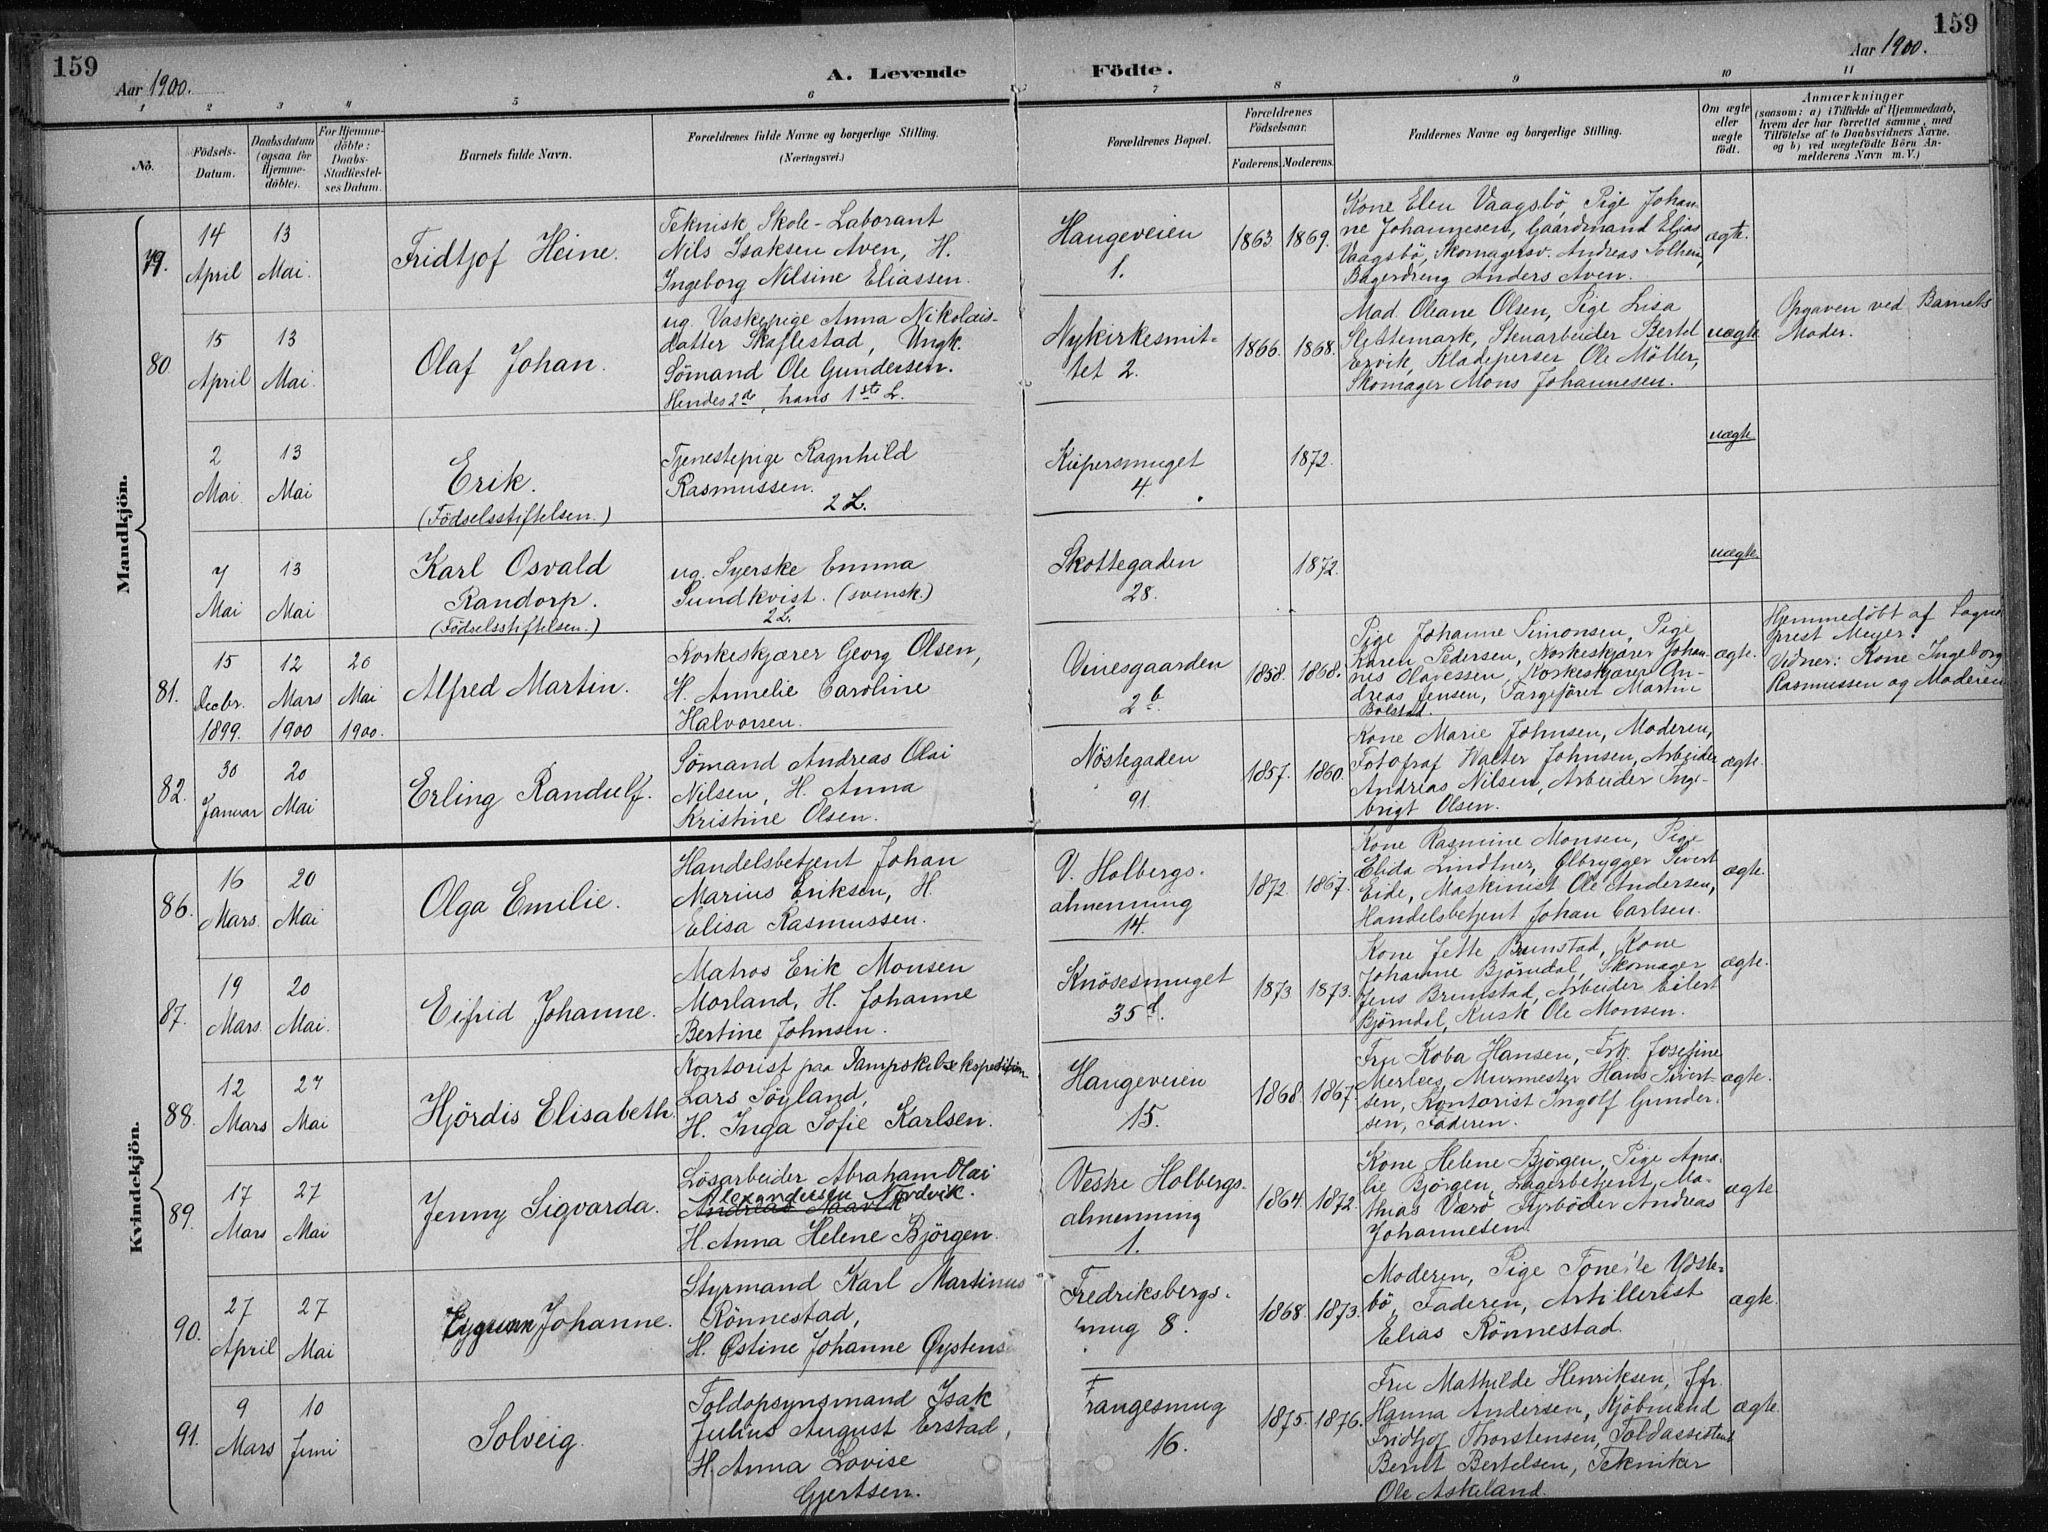 159
159
Aar 1900.
A. Levende
Födte.
Aar 1900.
1
2
3
4
5
6
7
8
9
10
11
No.
Födsels-
Datum.
Daabsdatum
(ogsaa for
Hjemme-
döbte).
For Hjemme-
döbte:
Daabs-
Stadfæstel-
ses Datum.
Barnets fulde Navn.
Forældrenes fulde Navne og borgerlige Stilling.
(Næringsvei.)
Forældrenes Bopæl.
Forældrenes
Födselsaar.
Faderens.
Moderens.
Faddernes Navne og borgerlige Stilling.
Om ægte
eller
uægte
födt.
Anmærkninger
(saasom: a) i Tilfælde af Hjemmedaab,
hvem der har forrettet samme, med
Tilföielse af to Daabsvidners Navne.
og b) ved uægtefödte Börn An-
melderens Navn m. V.)
Mandkjön.
79.
14
April
13
Mai.
Fridtjof Heine.
Teknisk Skole-Laborant
Nils Isaksen Aven, H.
Ingeborg Nilsine Eliassen.
Haugeveien
1.
1863
1869.
Kone Elen Vaagsbö, Pige Johan-
ne Johannesen, Gaardmand Elias
Vaagsbö, Skomagersv. Andreas Solheim,
Bagerdreng Anders Aven.
ægte.
80.
15
April
13
Mai.
Olaf Johan.
ug. Vaskepige Anna Nikolais-
datter Skaflestad, Ungk.
Sömand Ole Gundersen.
Hendes 2de, hans 1ste L.
Nykirkesmit-
tet 2.
1866.
1868.
Mad. Oleane Olsen, Pige Lisa
Slettemark, Stenarbeider Bertel
Ervik, Klædeperser Ole Möller,
Skomager Mons Johannesen.
uægte
Opgaven ved Barnets
Moder.
2
Mai.
13
Mai
Erik.
(Födselsstiftelsen.)
Tjenestepige Ragnhild
Rasmussen.
2 L.
Kipersmuget
4.
1872.
uægte
7
Mai
13
Mai
Karl Osvald
Randorp.
(Födselsstiftelsen.)
ug. Syerske Emma
Sundkvist. (svensk.)
2 L.
Skottegaden
28.
1872.
uægte.
81.
15
Decbr.
1899.
12
Mars
1900
20
Mai
1900.
Alfred Martin.
Korkeskjærer Georg Olsen,
H. Annelie Caroline
Halvorsen.
Vinesgaarden
2 b.
1858.
1868.
Pige Johanne Simonsen, Pige
Karen Pedersen, Korkeskjærer Johan-
nes Olavessen, Korkeskjærer An-
dreas Jensen, Færgefører Martin
Bolstad.
ægte.
Hjemmedøbt af Sogne-
prest Meyer.
Vidner: Kone Ingeborg
Rasmussen og Moderen
82.
30
Januar
20
Mai
Erling Randulf.
Sömand Andreas Olai
Nilsen, H. Anna
Kristine Olsen.
Nöstegaden
91.
1857.
1860.
Kone Marie Johnsen, Moderen,
Fotograf Walter Johnsen, Arbeider
Andreas Nilsen, Arbeider Inge-
brigt Olsen.
ægte.
Kvindekjön.
86.
16
Mars.
20
Mai
Olga Emilie.
Handelsbetjent Johan
Marius Eriksen, H.
Elisa Rasmussen.
V. Holbergs-
almenning
14.
1872.
1867.
Kone Rasmine Monsen, Pige
Elida Lindtner, Ølbrygger Sivert
Eide, Maskinist Ole Andersen,
Handelsbetjent Johan Carlsen.
ægte.
87.
19
Mars.
20
Mai.
Eifrid Johanne.
Matros Erik Monsen
Morland, H. Johanne
Bertine Johnsen.
Knösesmuget
35 d.
1873
1873.
Kone Jette Brunstad, Kone
Johanne Björndal, Skomager
Jens Brunstad, Arbeider Eilert
Björndal, Kusk Ole Monsen.
ægte.
88.
12
Mars
27
Mai
Hjördis Elisabeth.
Kontorist paa Dampskibsekspedition
Lars Söyland,
H. Inga Sofie Karlsen.
Haugeveien
15.
1868.
1867.
Fru Koba Hansen, Frk. Josefine
Merlees, Murmester Hans Sivert-
sen, Kontorist Ingolf Gunder-
sen, Faderen.
ægte.
89.
17
Mars
27
Mai
Jenny Sigvarda.
Lösarbeider Abraham Olai
Alexandersen Nordvik.
Andreas Naavik
H. Anna Helene Björgen.
Vestre Holbergs-
almenning
1.
1864.
1872.
Kone Helene Björgen, Pige Ama-
lie Björgen, Lagerbetjent Ma-
thias Værö, Fyrböder Andreas
Johannesen.
ægte.
90.
27
April
27
Mai
Johanne.
Styrmand Karl Martinus
Rönnestad,
H. Østine Johanne Øystens
Fredriksbergs-
smug 8.
1868.
1873.
Moderen, Pige Tonette Ydste-
bö, Faderen, Artillerist
Elias Rönnestad.
ægte.
91.
9
Mars
10
Juni
Solveig.
Toldopsynsmand Isak
Julius August Erstad,
H. Anna Lovise
Gjertsen.
Frangesmug
16.
1875.
1876.
Fru Mathilde Henriksen, Jfr.
Hanna Andersen, Kjöbmand
Fridtjof Thorstensen, Toldassistent
Bernt Bertelsen, Tekniker
Ole Askeland.
ægte.